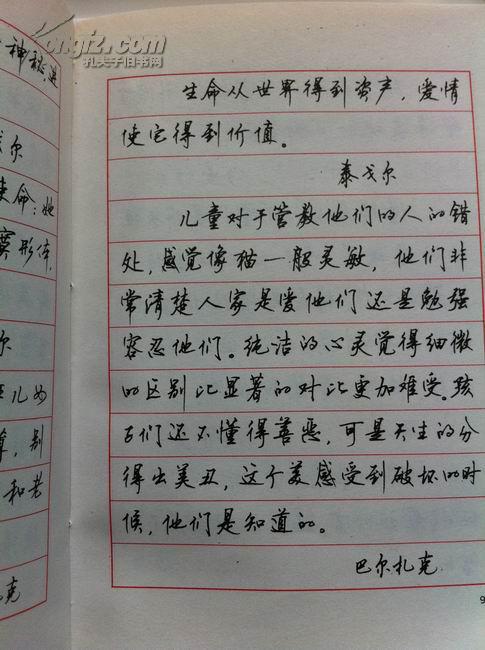 神秘,
尔
使命:她
形体,
尔
儿女
,别
和老
克
kongfz.com
孔夫子旧书网
生命从世界得到资声,爱情
使它得到价值。
泰戈尔
儿童对于管教他们的人的错
处,感觉像猫一般灵敏,他们非
常清楚人家是爱他们还是勉强
容忍他们。纯洁的心灵觉得细微
的区别比显著的对比更加难受。孩
子们还不懂得善恶,可是天生的分
得出美丑,这个美感受到破坏的时
候,他们是知道的。
巴尔札克
9